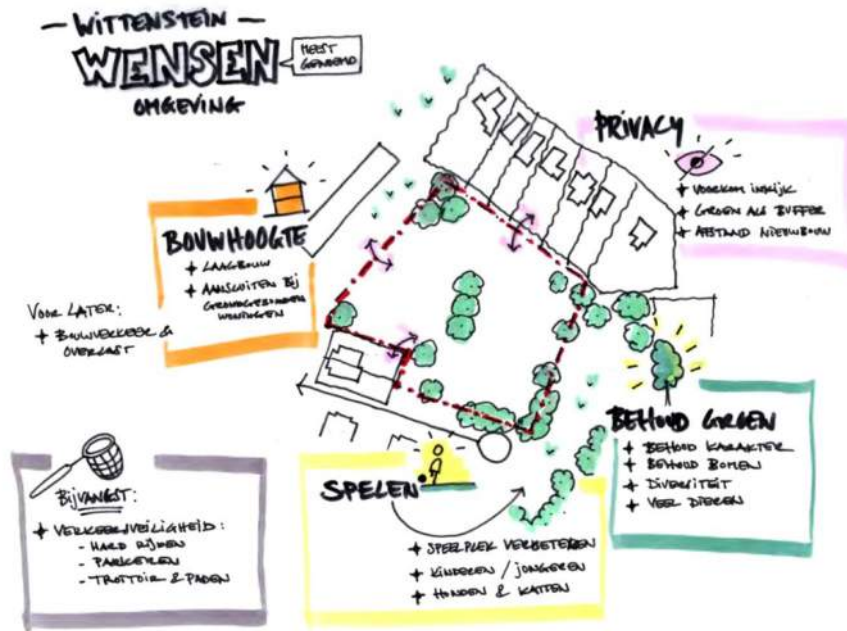 - WITTENSTEIN -
WENSEN
MEEST
GENOEMD
OMGEVING
PRIVACY
+ VOORKOM INKIJK
+ GROEN ALS BUFFER
+ AFSTAND NIEUWBOUW
BOUWHOOGTE
+ LAAGBOUW
+ AANSLUITEN BIJ
GRONDGEBONDEN
WONINGEN
VOOR LATER:
+ BOUWVERKEER &
OVERLAST
BEHOUD GROEN
+ BEHOUD KARAKTER
+ BEHOUD BOMEN
+ DIVERSITEIT
+ VEEL DIEREN
BIJVANGST:
+ VERKEERSVEILIGHEID:
- HARD RIJDEN
- PARKEREN
- TROTTOIR & PADEN
SPELEN
+ SPEELPLEK VERBETEREN
+ KINDEREN / JONGEREN
+ HONDEN & KATTEN